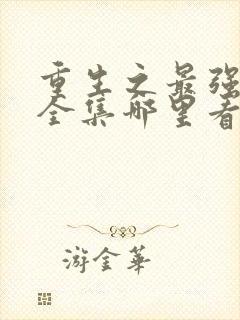 重生之最强
全集哪里看
游金華